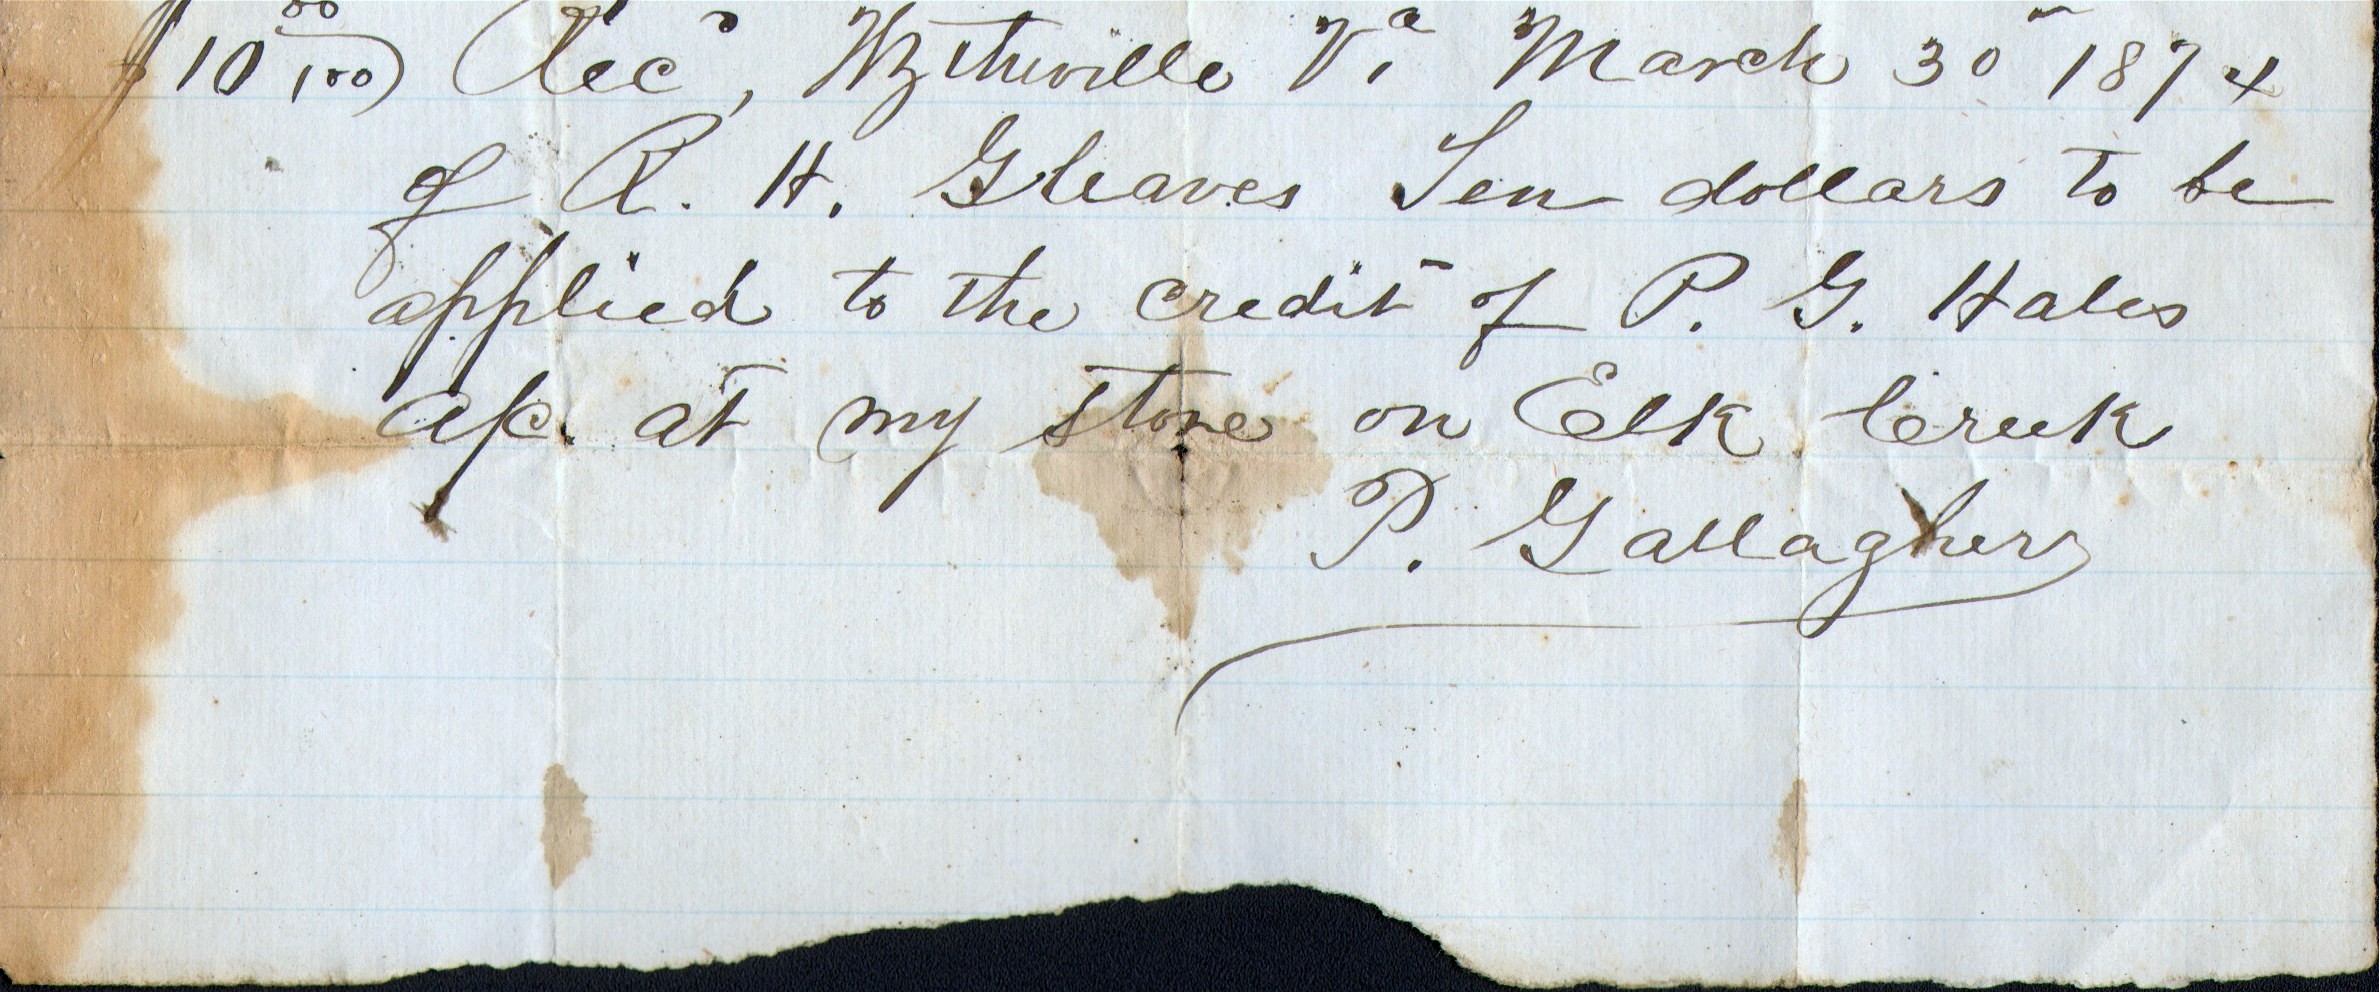 $10 00/100) Recd, Wytheville Va March 30 1874
of R. H. Gleaves Ten dollars to be
applied to the credit of P. G. Hales
a/c. at my store on Elk Creek
P. Gallagher